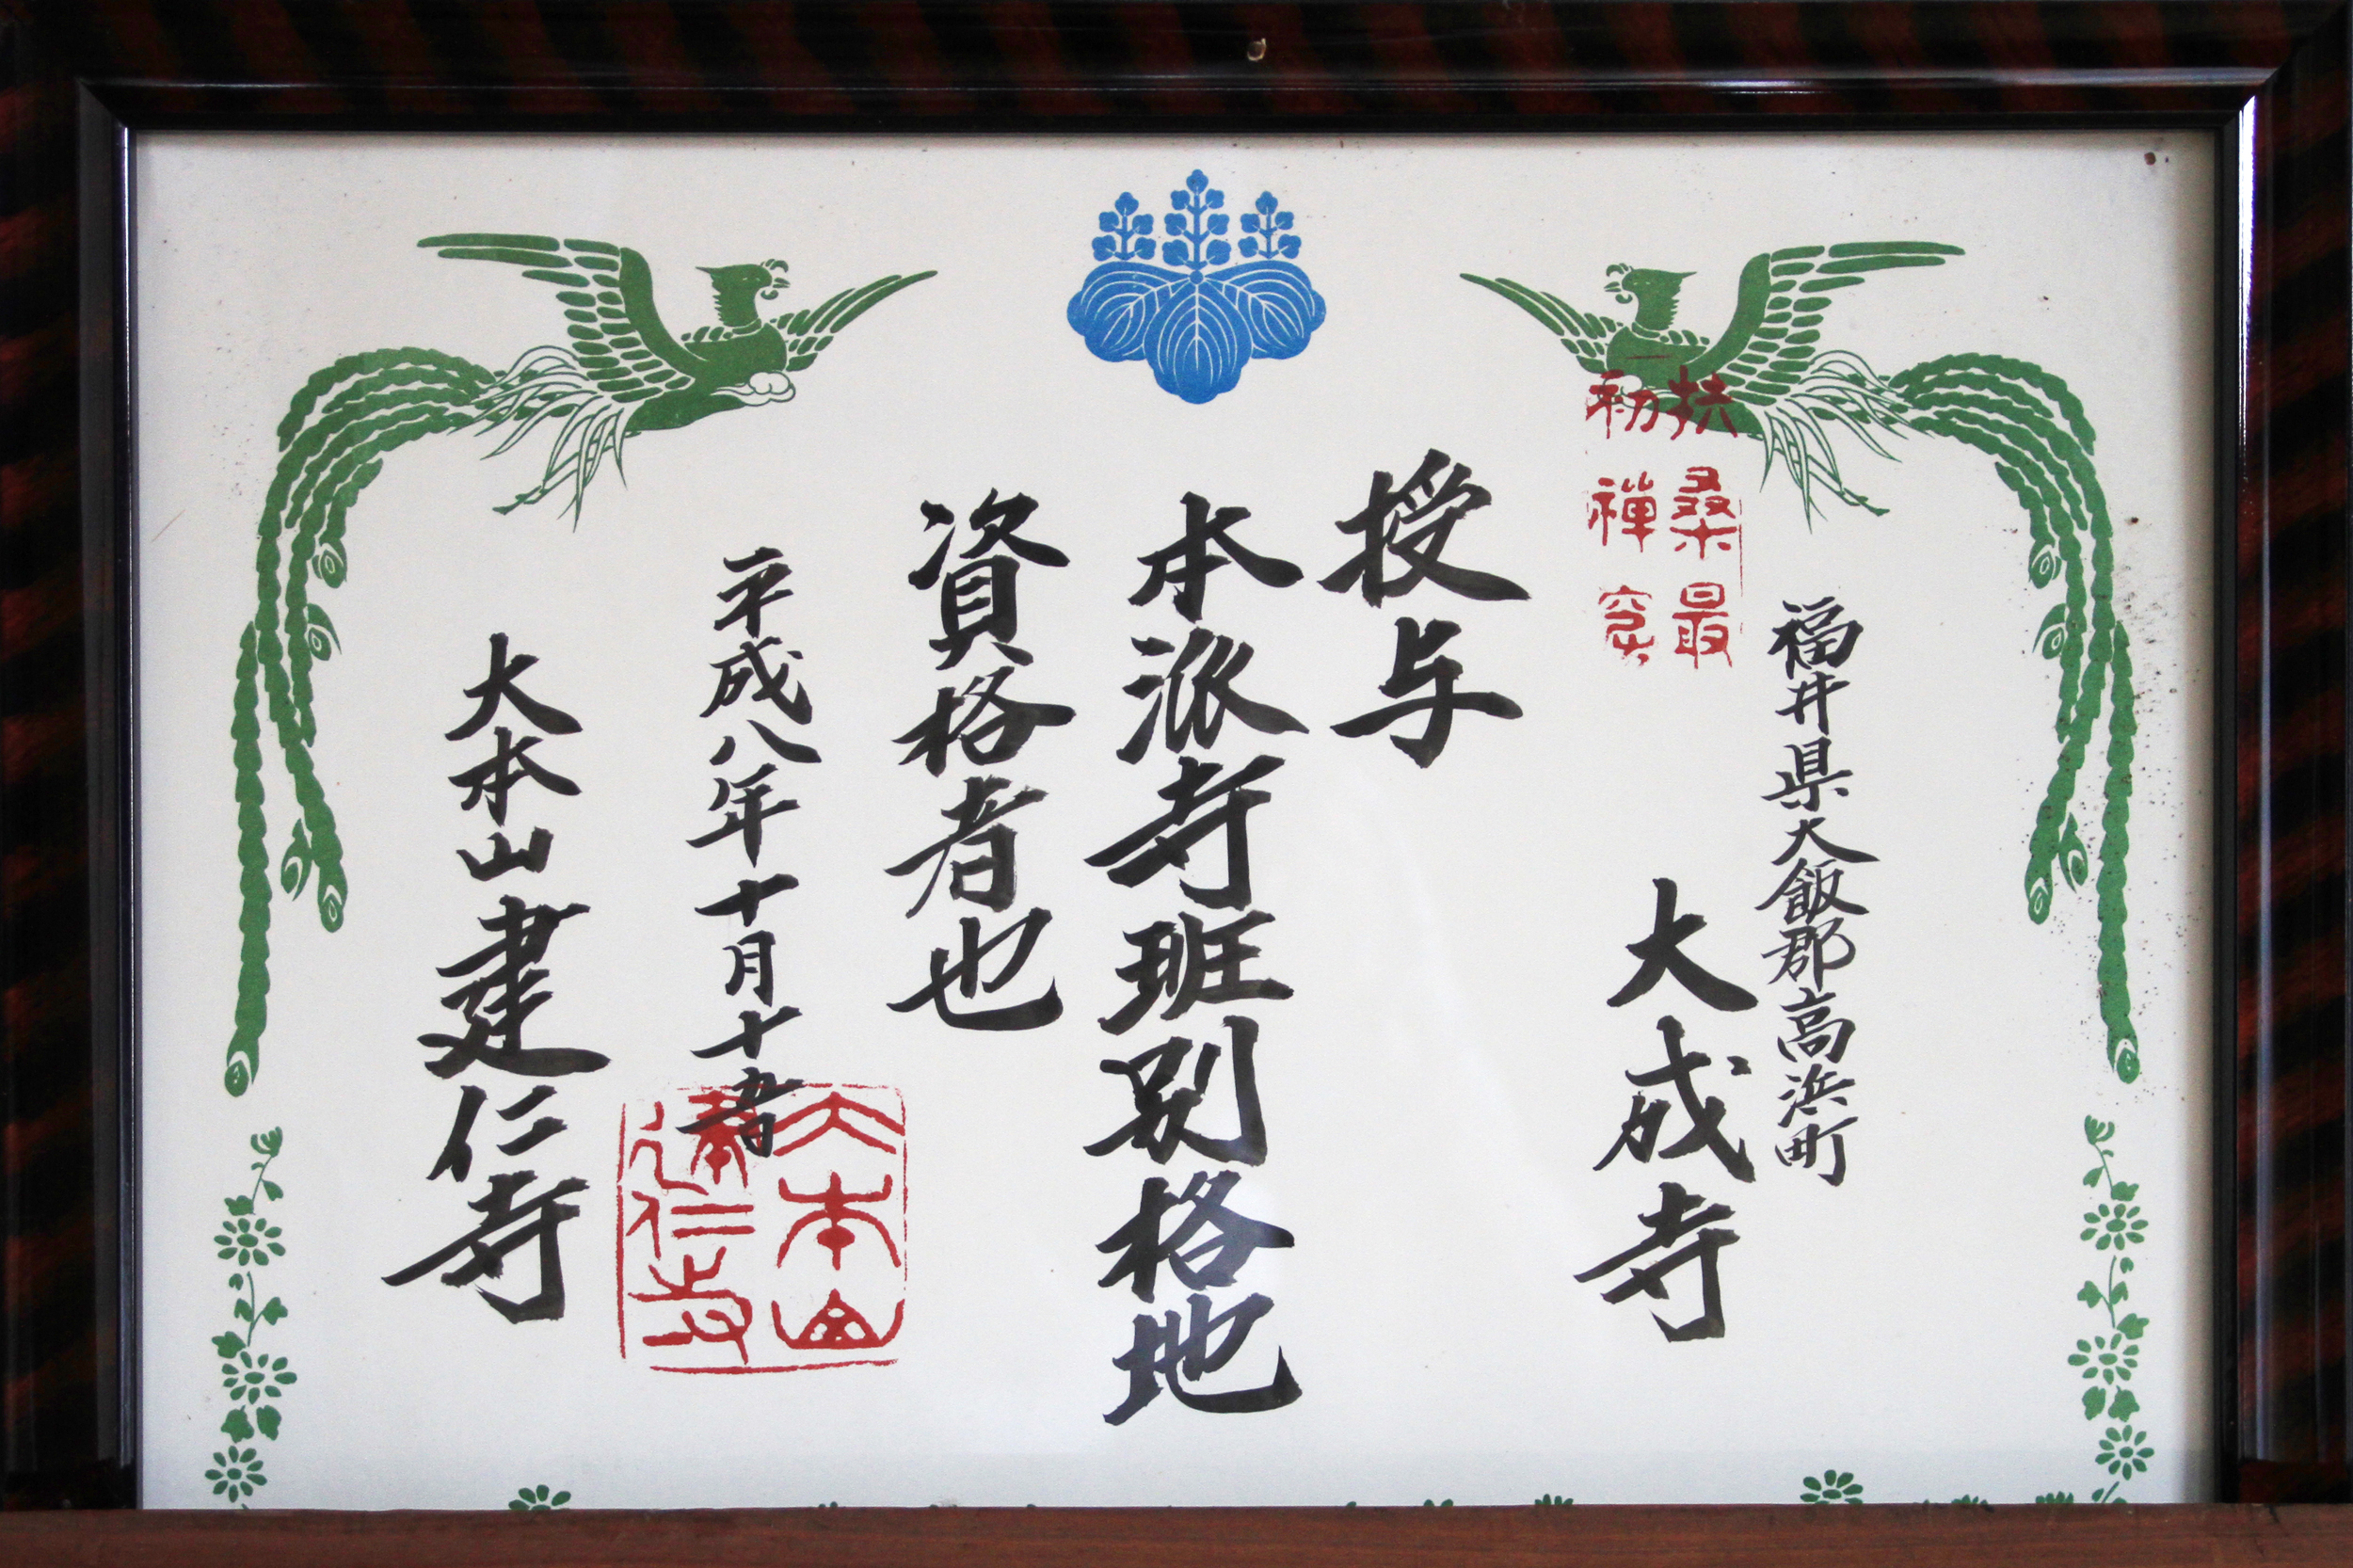 福井県大飯郡高浜町
大成寺
扶桑最
初禅窟
授与
本派寺班別格地
資格者也
平成八年十月十五日
大本山
建仁寺
大本山建仁寺